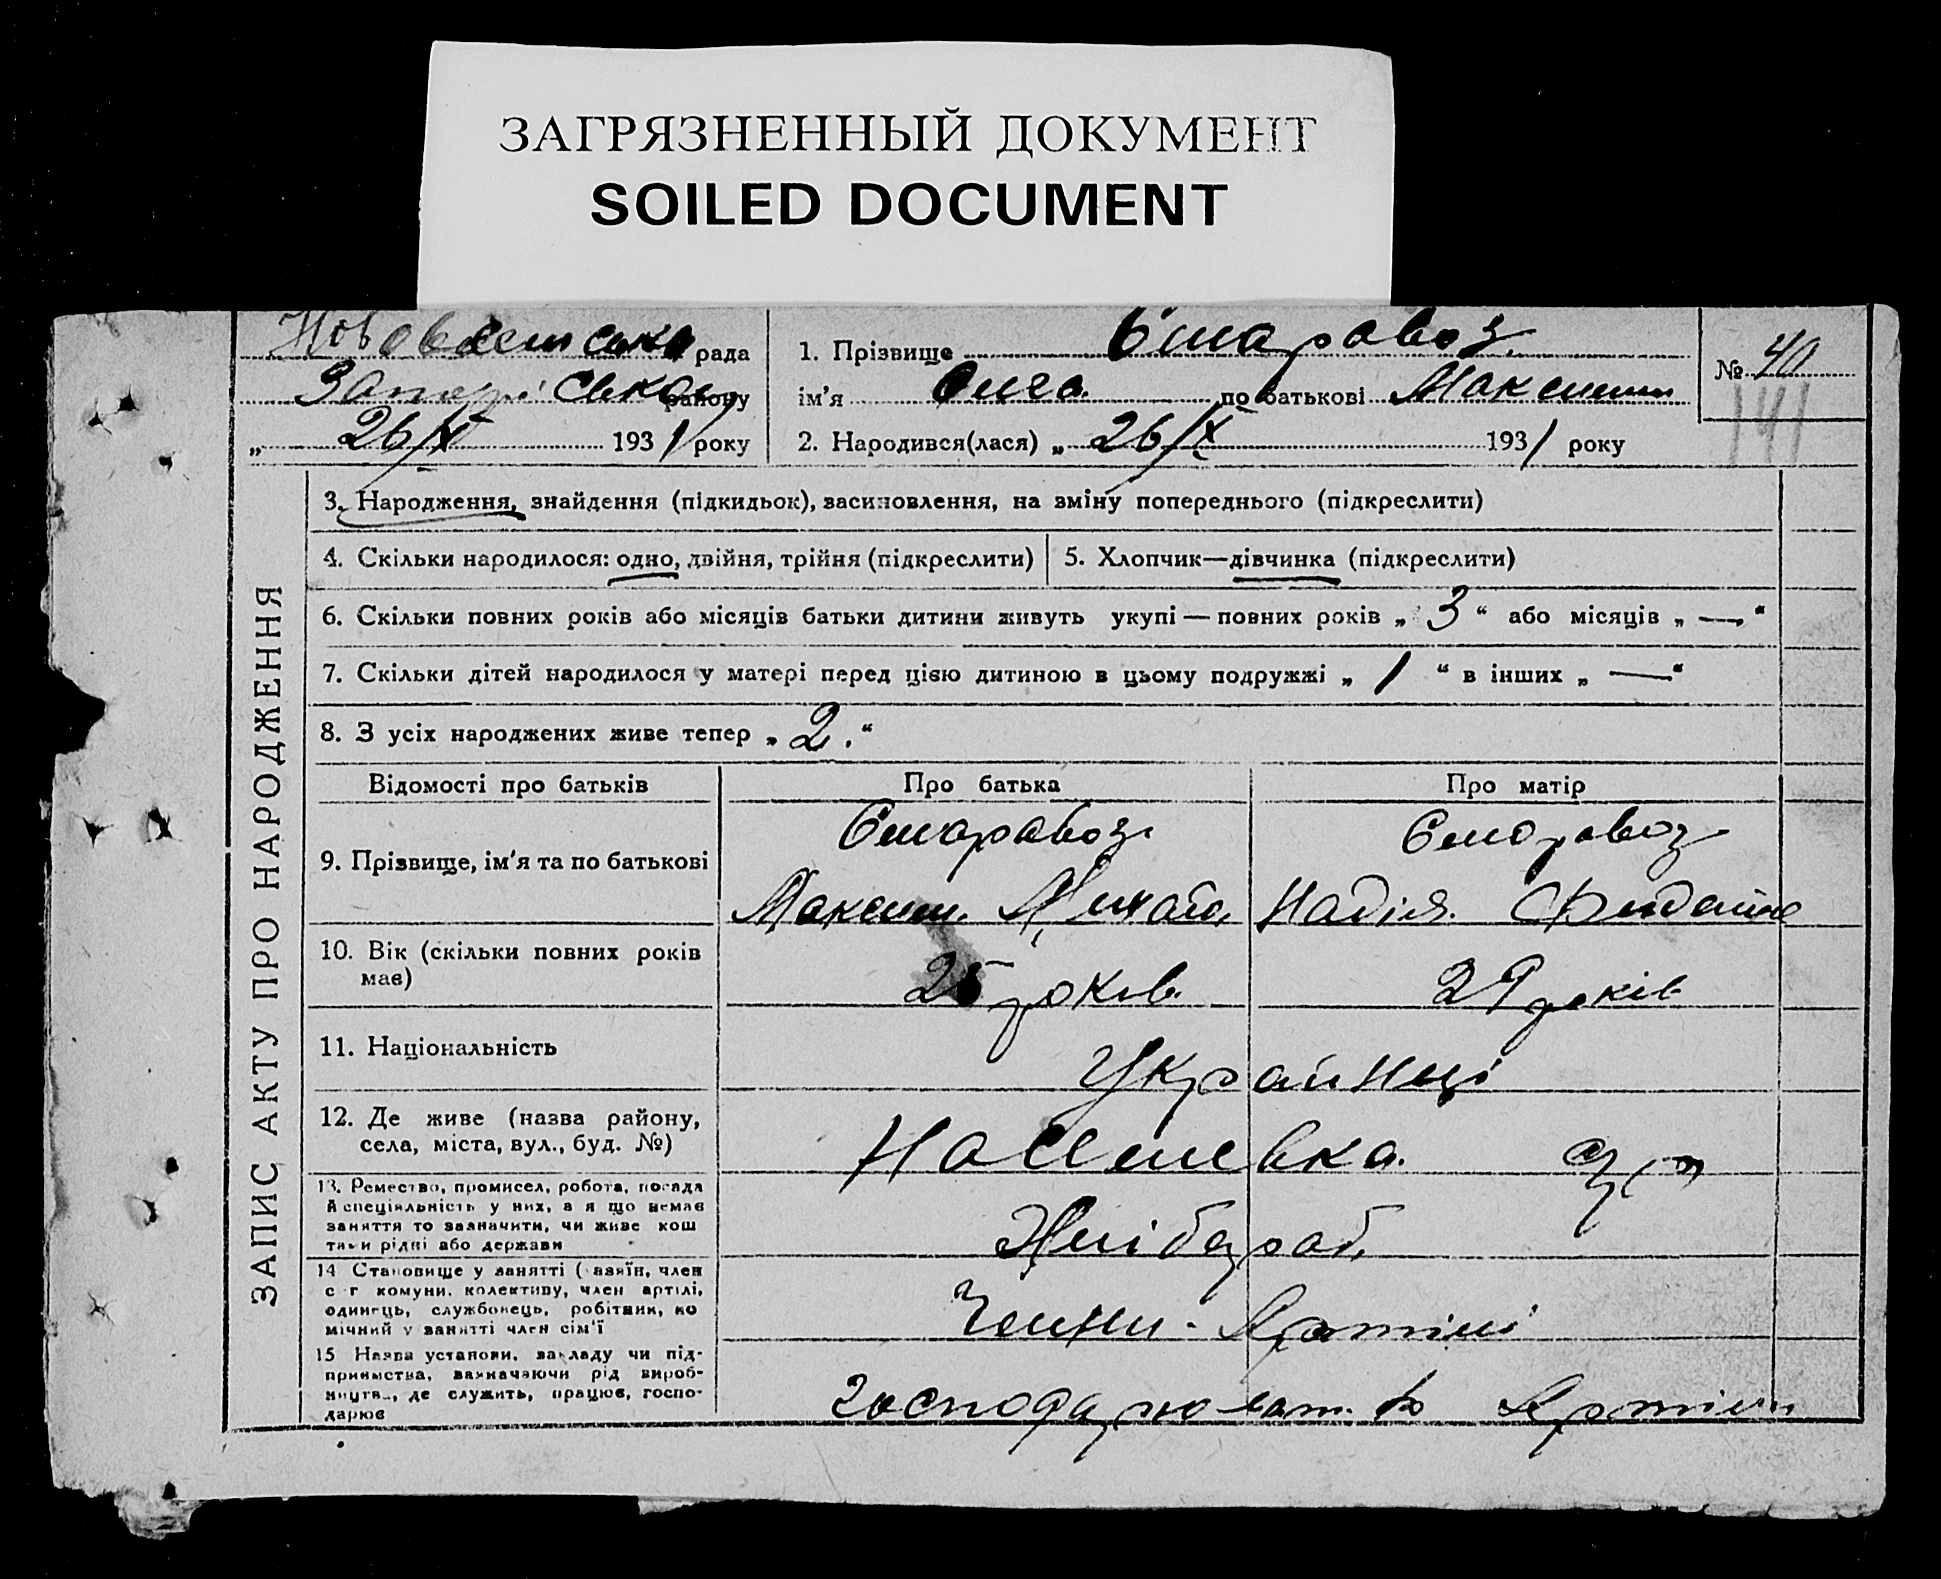 ЗАГРЯЗНЕННЫЙ ДОКУМЕНТ
SOILED DOCUMENT
рада
району
„ 26/X 1931 року
1. Прізвище Старовоз
ім'я Ольга по батькові Максимов
2. Народився(лася) „ 26/X 1931 року
№ 40
141
ЗАПИС АКТУ ПРО НАРОДЖЕННЯ
3. Народження, знайдення (підкидьок), засиновлення, на зміну попереднього (підкреслити)
4. Скільки народилося: одно, двійня, трійня (підкреслити)
5. Хлопчик—дівчинка (підкреслити)
6. Скільки повних років або місяців батьки дитини живуть укупі — повних років „ 3 “ або місяців „ — “
7. Скільки дітей народилося у матері перед цією дитиною в цьому подружжі „ 1 “ в інших „ — “
8. З усіх народжених живе тепер „ 2. “
Відомості про батьків Про батька Про матір
9. Прізвище, ім'я та по батькові
Старовоз Старовоз
Максим. Надія.
10. Вік (скільки повних років має)
25 років 29 років
11. Національність
Українці
12. Де живе (назва району, села, міста, вул., буд. №)
13. Ремество, промисел, робота, посада
й спеціяльність у них, а я що немає
заняття то зазначити, чи живе кош
тами рідні або держави
Хлібораб.
14 Становище у занятті (хазяїн, член
с г комуни, колективу, член артілі,
одинець, службовець, робітник, по
мічний у занятті член сім'ї
Члени Артілі
15 Назва установи, закладу чи під-
приємства, зазначаючи рід вироб-
ництва, де служить, працює, госпо-
дарює
Господарюват. в Артілі